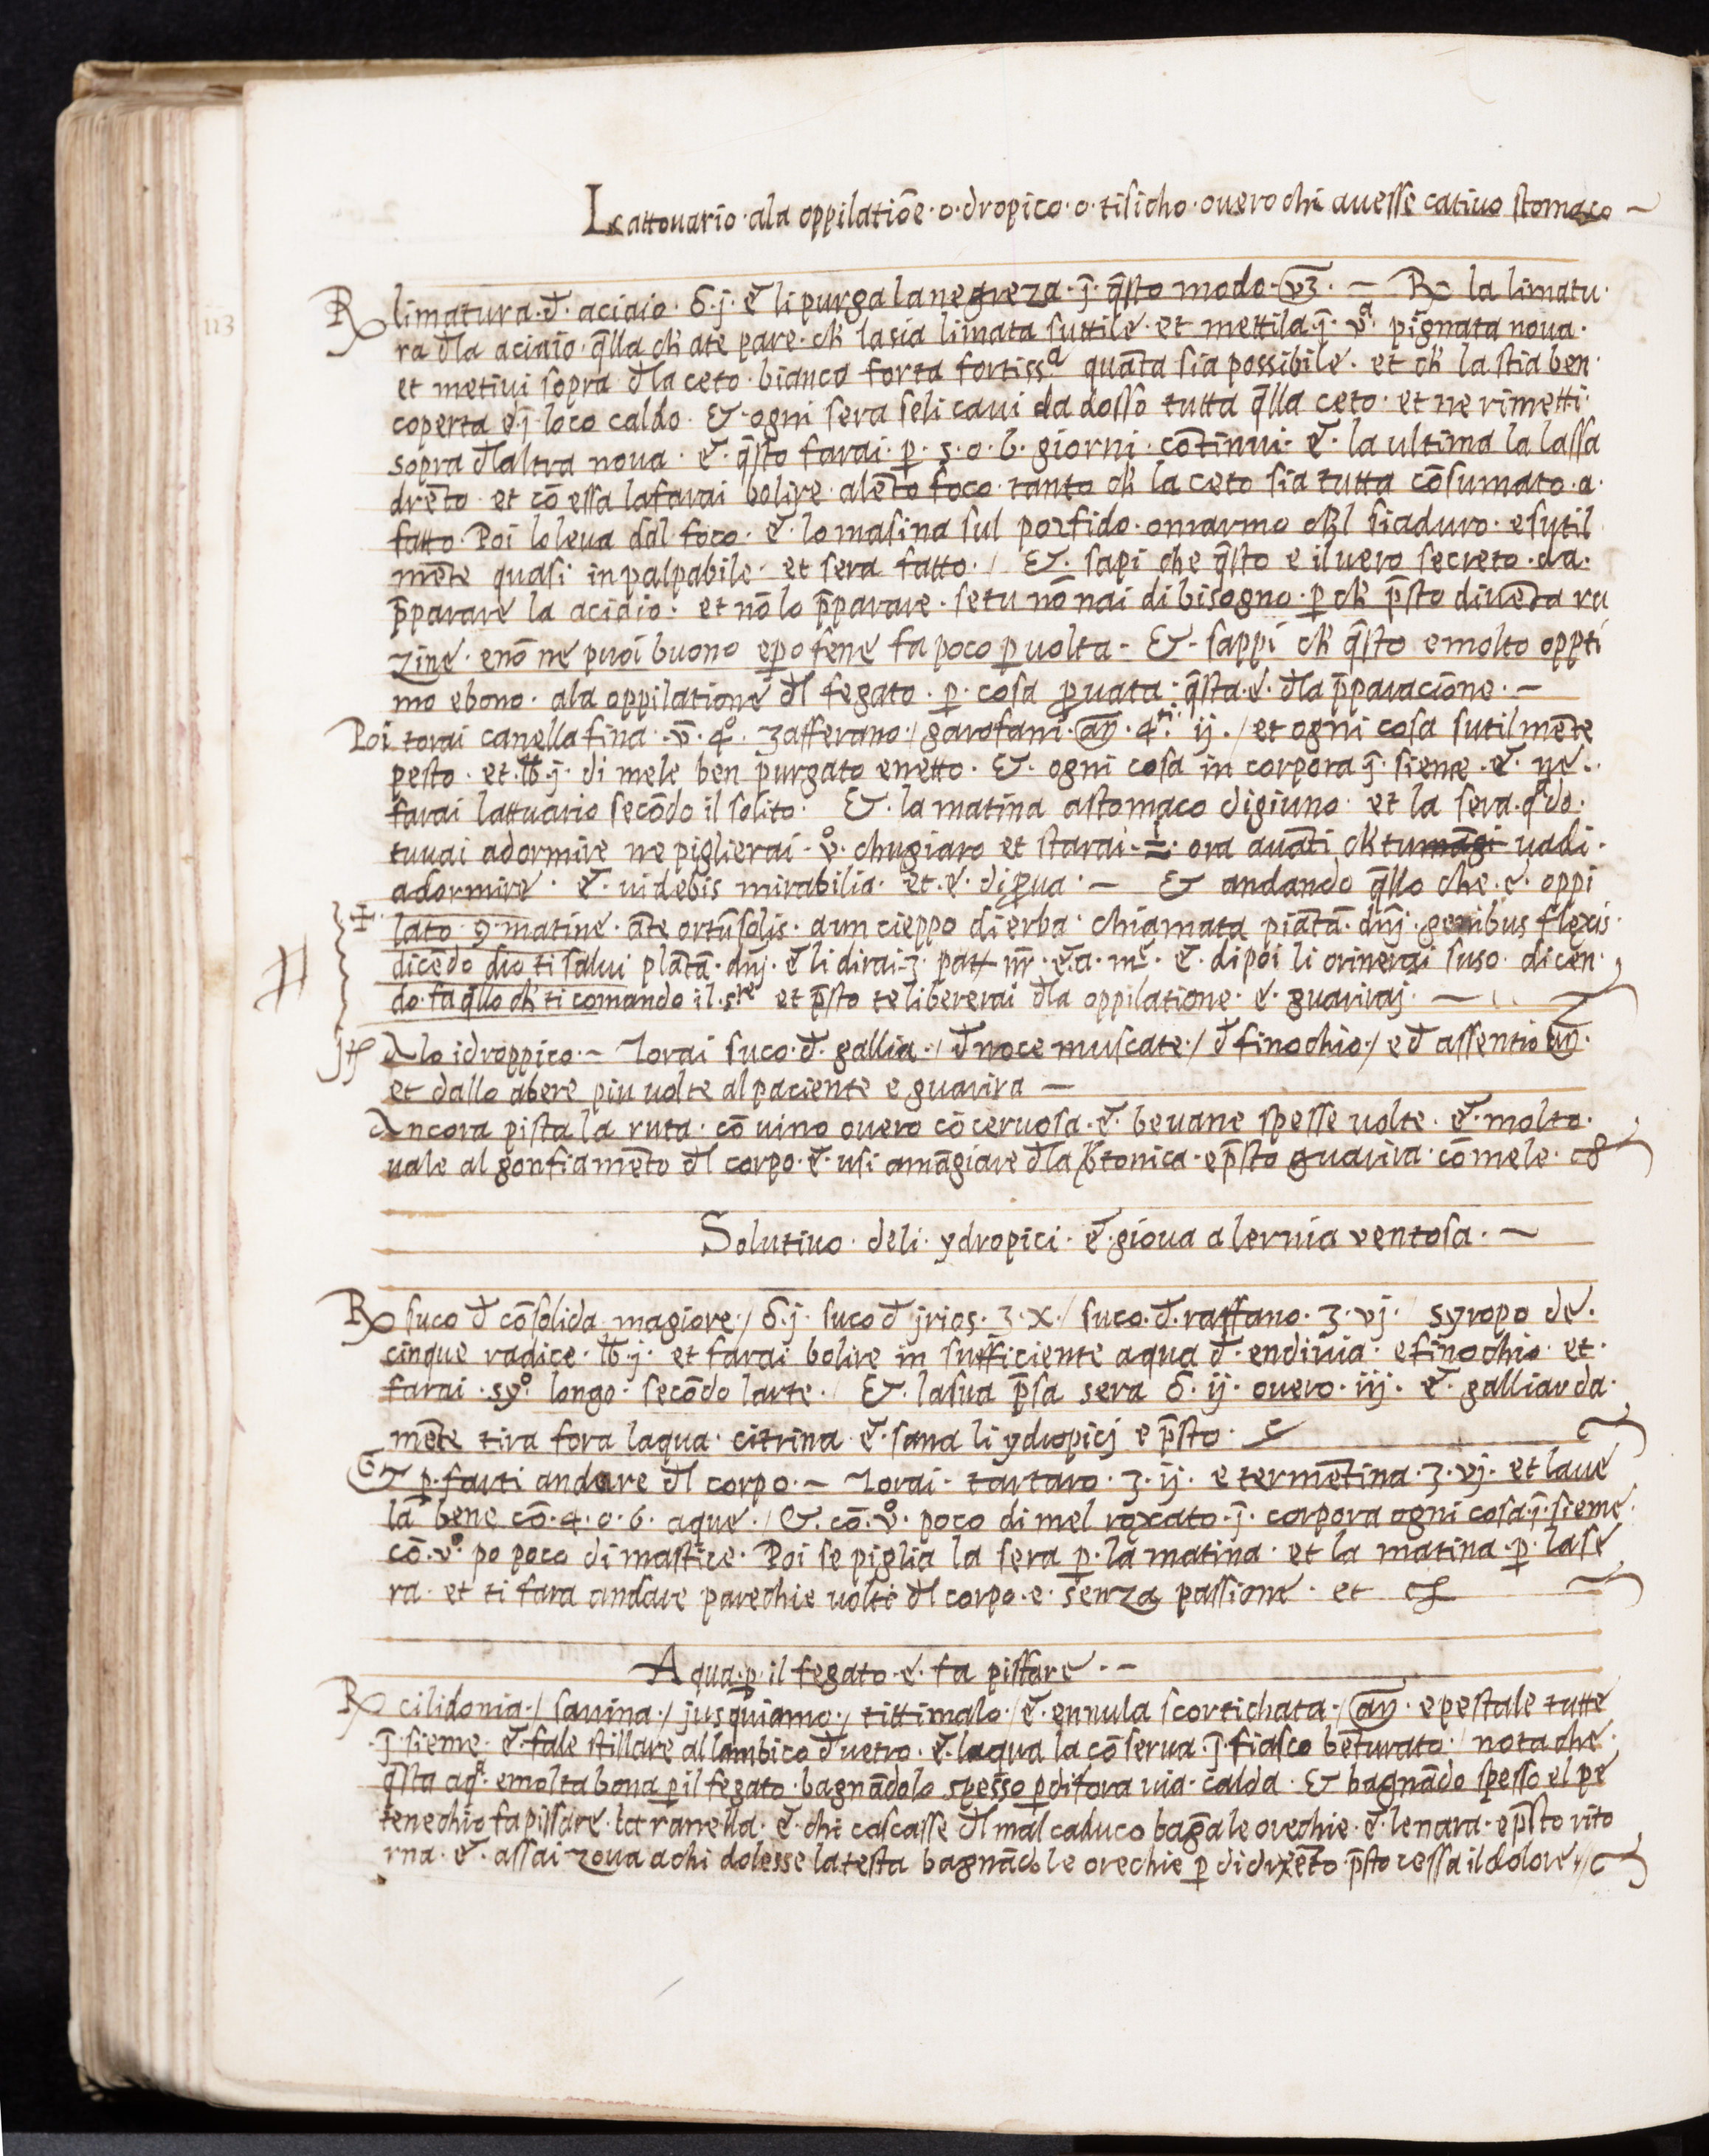 Lattovario · ala oppilatiōe · o · dropico · o · tisicho · overo chi avesse cativo stomaco ~
℞ limatura · đ · aciaio · δ · j · ē li purga la negreza · j̄ · q̄sto modo · v3 · — ℞ la limatu ·
ra đla aciaio · q̄lla ch̄ ate pare · ch̄ la sia limata suttile · et mettila · j̄ · vᵃ · pignata nova ·
et metivi sopra đla ceto · bianco forta fortissᵃ quāta sia possibile · et ch̄ la stia ben ·
coperta e · j̄ · loco caldo · & · ogni sera seli cavi da dosso tutta q̄lla ceto · et ne rimetti ·
sopra đlaltra nova · ē · q̄sto farai · p̱ · 5 · o · 6 · giorni · cōtinui · ē · la ultima la lassa
drēto · et cō essa la farai bolire · alēto foco · tanto ch̄ la ceto sia tutta cōsumato · a ·
fatto · Poi lo leva dal foco · ē · lo masina sul porfido · o marmo ch̄l sia duro · e sutil
mēte quasi in palpabile · et sera fatto · / & · sapi che q̄sto e il vero secreto · da ·
p̄parare la aciaio · et nō lo p̄parare · se tu nō nai di bisogno · p̱ ch̄ p̄sto divēta ru
zine · enō ne puoi buono ep̱o fene fa poco p̱ volta · & · sappi ch̄ q̄sto e molto oppti
mo e bono · ala oppilatione đl fegato · p̱ · cosa p̱vata · q̄sta · ē · đla p̄paracione · —
Poi torai canella fina · v̄ · 4° · zafferano · / garofani · an̄ · 4ᵗⁱ · ij · / et ogni cosa sutilmēte
pesto · et · ℔ · j · di mele ben purgato e netto · & · ogni cosa in corpora j̄ · sieme · ē · ne ·
farai lattuario secōdo il solito · & · la matina a stomaco digiuno · et la sera · qᵃdo ·
tu vai a dormire ne piglierai · v° · chugiaro et starai · ÷ · ora avāti ch̄ tu māgi vadi ·
a dormire · ē · videbis mirabilia · et · ē · di p̱va · — & andando q̄llo che · ē · oppi
lato · 9 · matine · āte ortū solis · a un cieppo di erba · chiamata piātā · dn̄j · genibus flexis ·
dicēdo dio ti salvi plātā · dn̄j · ē li dirai · 3 · pat̄r nr̄ · ē · a · mᵉ · ē · di poi li orinerai suso · dicen ·
do · fa q̄llo ch̄ ti comando il · sʳᵉ et p̄sto te libererai đla oppilatione · ē · guariraj · —
Alo idroppico · — Torai suco · đ · gallia · / đ noce muscate · / đ finochio · / e đ assentio an̄ ·
et dallo abere piu volte al paciente e guarira —
Ancora pista la ruta · cō vino overo cō cervosa · ē · bevane spesse volte · ē · molto ·
vale al gonfiamēto đl corpo · ē · usi a māgiare đla b̄tonica · e p̄sto guarira · cō mele ·
Solutivo · deli · ydropici · ē · giova a lernia ventosa · ~
℞ suco đ cōsolida magiore · / δ · j · suco đ jrios · ʒ · x / suco · đ · raffano · ʒ · vj · / syropo de ·
cinque radice · ℔ · j · et farai bolire in sufficiente aqua đ · endivia · e finochio · et ·
farai · sy° · longo · secōdo larte · / & · la sua p̄sa sera δ · ij · overo · iij · ē · galliarda ·
mēte tira fora laqua · citrina · ē · sana li ydropicj e p̄sto ·
Et p̱ · farti andare đl corpo · — Torai · tartaro · ʒ · ij · e termētina · ʒ · vj · et lave
la bene cō · 4 · o · 6 · aque · / & · cō · v° · poco di mel roxato · j̄ · corpora ogni cosa · j̄ · sieme ·
cō · v° · po poco di mastice · Poi se piglia la sera p̱ · la matina · et la matina · p̱ · la se
ra · et ti fara andare parechie volte đl corpo · e · senza passione · et
Aqua · p̱ · il fegato · ē · fa pissare · —
℞ cilidonia · / savina · / jusquiamo · / tittimalo · / ē · ennula scortichata · / an̄ · e pestale tutte
j̄ · sieme · ē · fale stillare al lambico đ vetro · ē · laqua la cō serva · j̄ · fiasco bē turato · / nota che ·
q̄sta aqᵃ · e molta bona p̱ il fegato · bagnādolo spesso p̱ di fora via · calda · & bagnādo spesso el pe
tenechio fa pissare · la ranella · ē · chi cascasse đl mal caduco bagāle orechie · ē · le nara · e p̄sto rito
rna · ē · assai zova a chi dolesse la testa bagnādole orechie p̱ di drēto p̄sto cessa il dolore ·